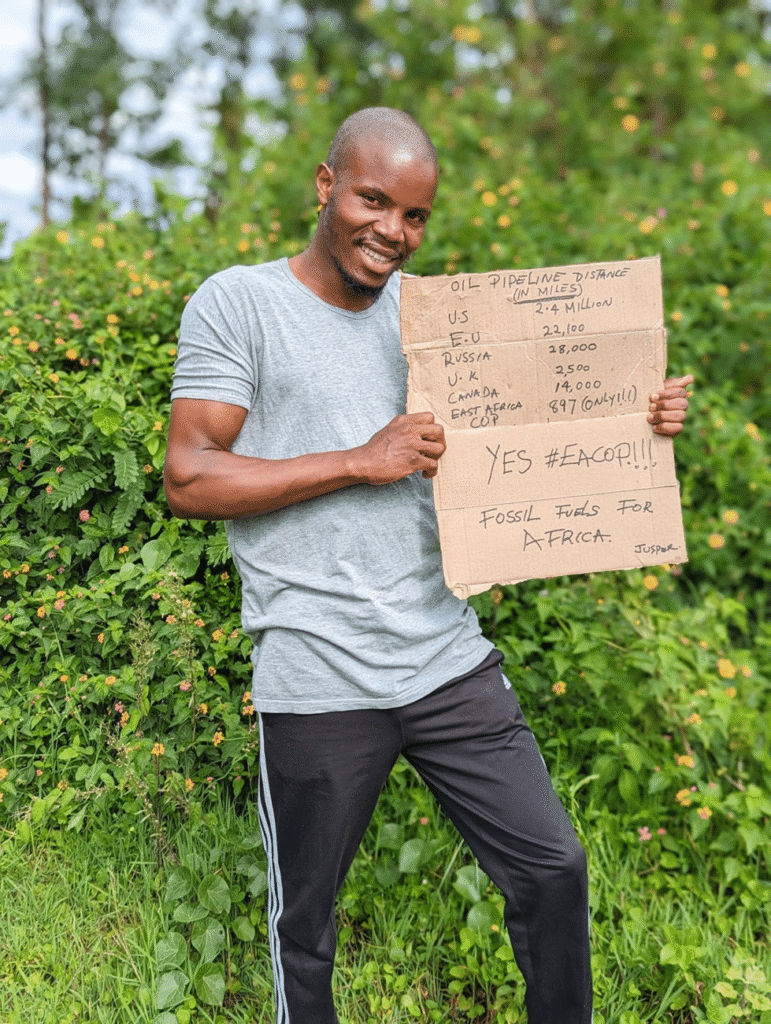 OIL PIPELINE DISTANCE
(IN MILES)
U.S 2.4 MILLION
E.U 22,100
RUSSIA 28,000
U.K 2,500
CANADA 14,000
EAST AFRICA 897 (ONLY!!!)
COP
YES #EACOP!!!.
FOSSIL FUELS FOR
AFRICA.
JUSPER.